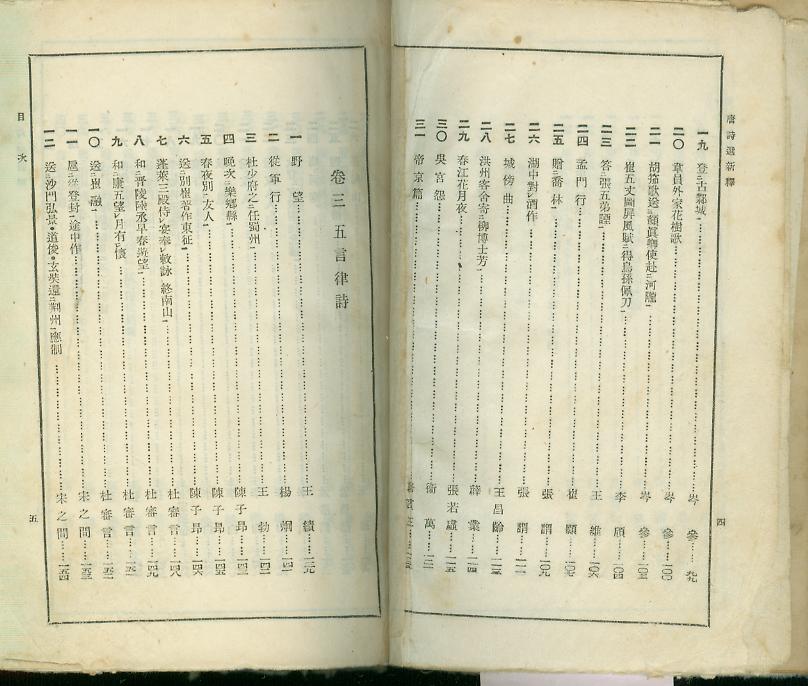 唐詩選新釋
一九 登古鄴城 岑參 九九
二〇 韋員外家花樹歌 岑參 一〇〇
二一 胡笳歌送顏眞卿使赴河隴 岑參
二二 崔五丈圖屏風賦得烏孫佩刀 李頎 一〇四
二三 答張五弟諲 王維 一〇六
二四 孟門行 崔顥 一〇七
二五 贈喬林 張謂 一〇九
二六 湖中對酒作 張謂
二七 城傍曲 王昌齡
二八 洪州客舍寄柳博士芳 薛業 一一四
二九 春江花月夜 張若虛 一一五
三〇 吳宮怨 衞萬
三一 帝京篇
四
卷三 五言律詩
一 野望 王績 一三九
二 從軍行 楊烱 一四一
三 杜少府之任蜀州 王勃 一四二
四 晚次樂鄉縣 陳子昂
五 春夜別友人 陳子昂 一四六
六 送別崔著作東征 陳子昂
七 蓬萊三殿侍宴奉敕詠終南山 杜審言 一四八
八 和晋陵陸丞早春遊望 杜審言 一四九
九 和康五望月有懷 杜審言
一〇 送崔融 杜審言
一一 扈從登封途中作 宋之問
一二 送沙門弘景・道俊・玄奘還荆州應制 宋之問 一五四
目次
五